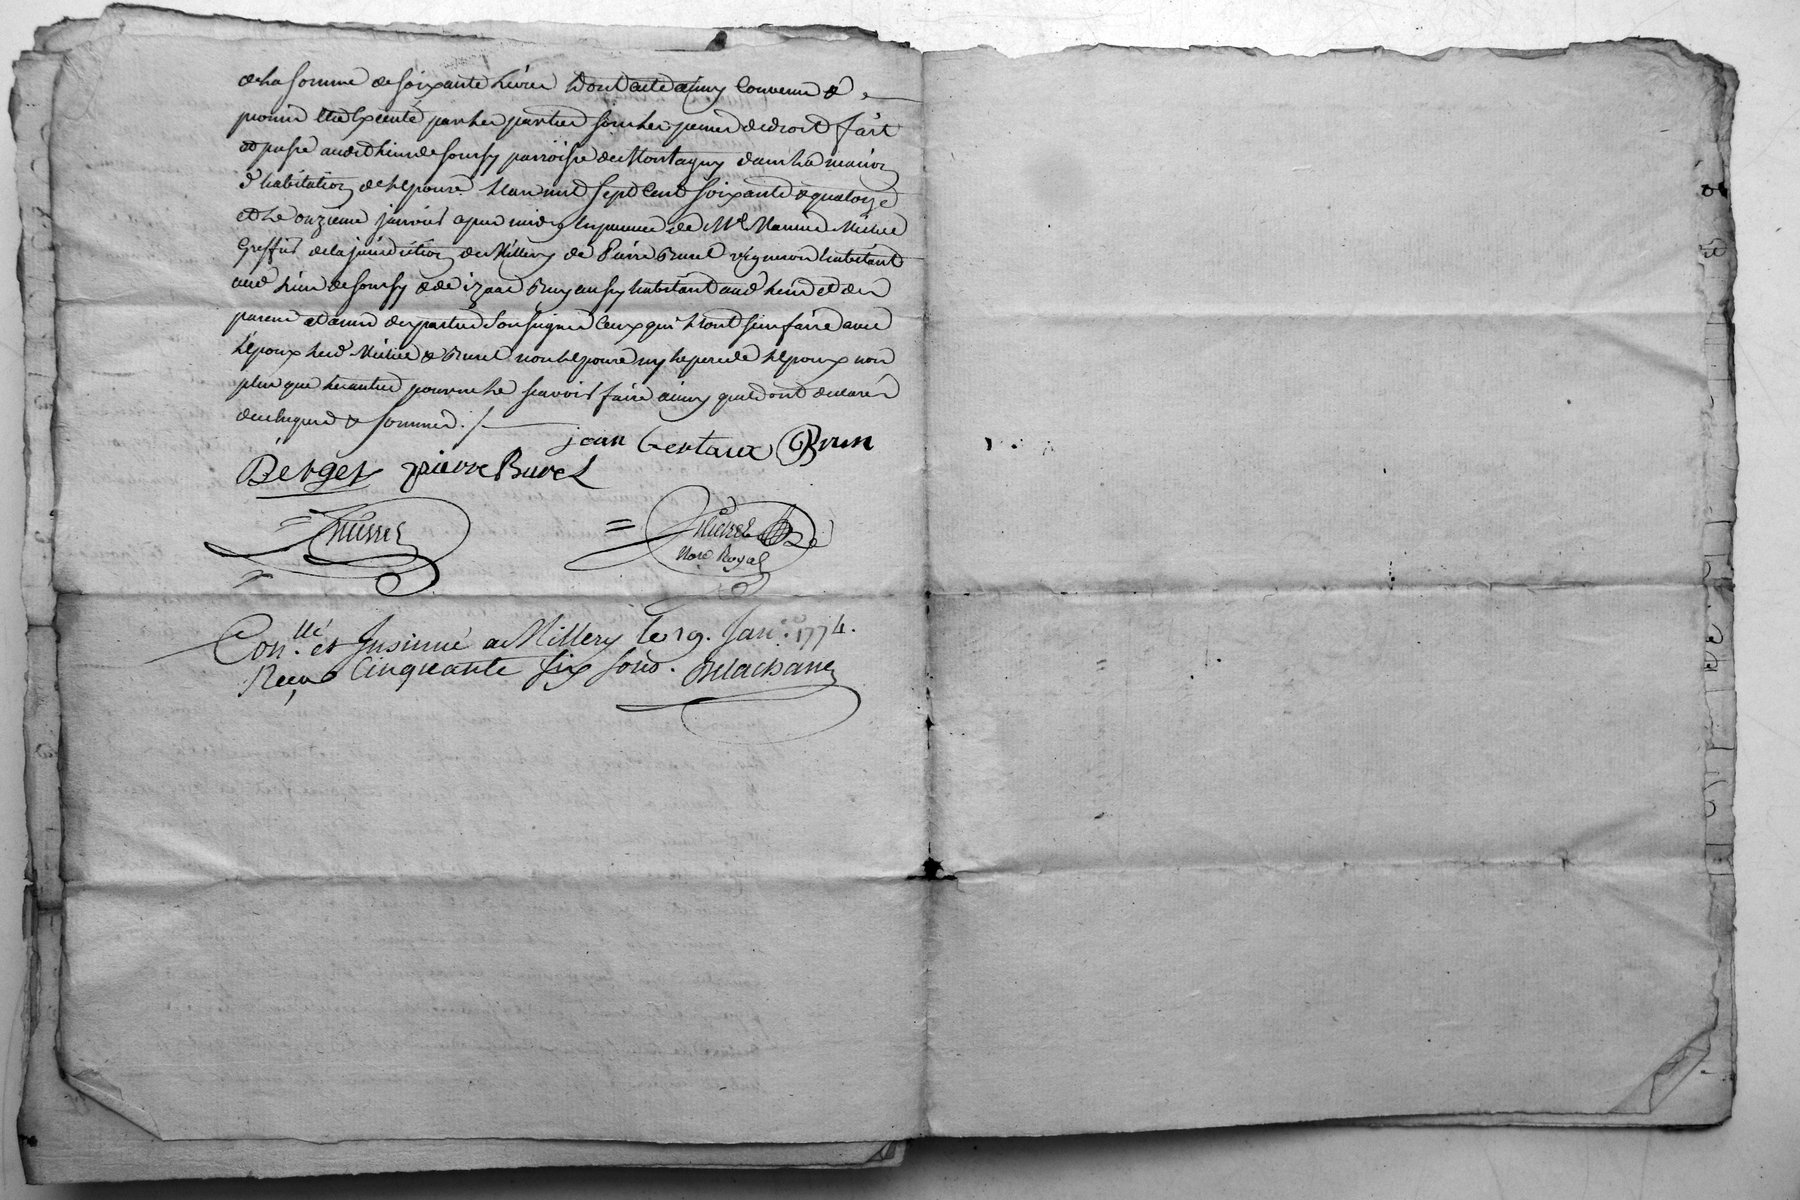 de la somme de soixante livres dont acte ainsy convenu &
promis etre executé par les parties sous les peines de droit fait
et passé audit lieu de Sourzy parroisse de Montagny dans la maison
d'habitation de l'epouse l'an mil sept cent soixante & quatorze
et le onzieme janvier apres midy en presence de Me
Greffier de la jurisdiction de Millery de Pierre Burel vigneron habitant
aud lieu de Sourzy & de aussy habitant aud lieu et des
parens et amis des parties soussignes ceux qui l'ont sçeu faire avec
l'epoux led & Burel non l'epouse ny le pere de l'epoux non
plus que les autres pour ne le sçavoir faire ainsy qu'ils ont declarés
de ce enquis & sommés ./.
jean Brun
Berger pierre Burel
Nore Royal
Con.llé et Insinué a Millery le 19. Jan. 1774.
Reçu Cinquante six sous. Delachana